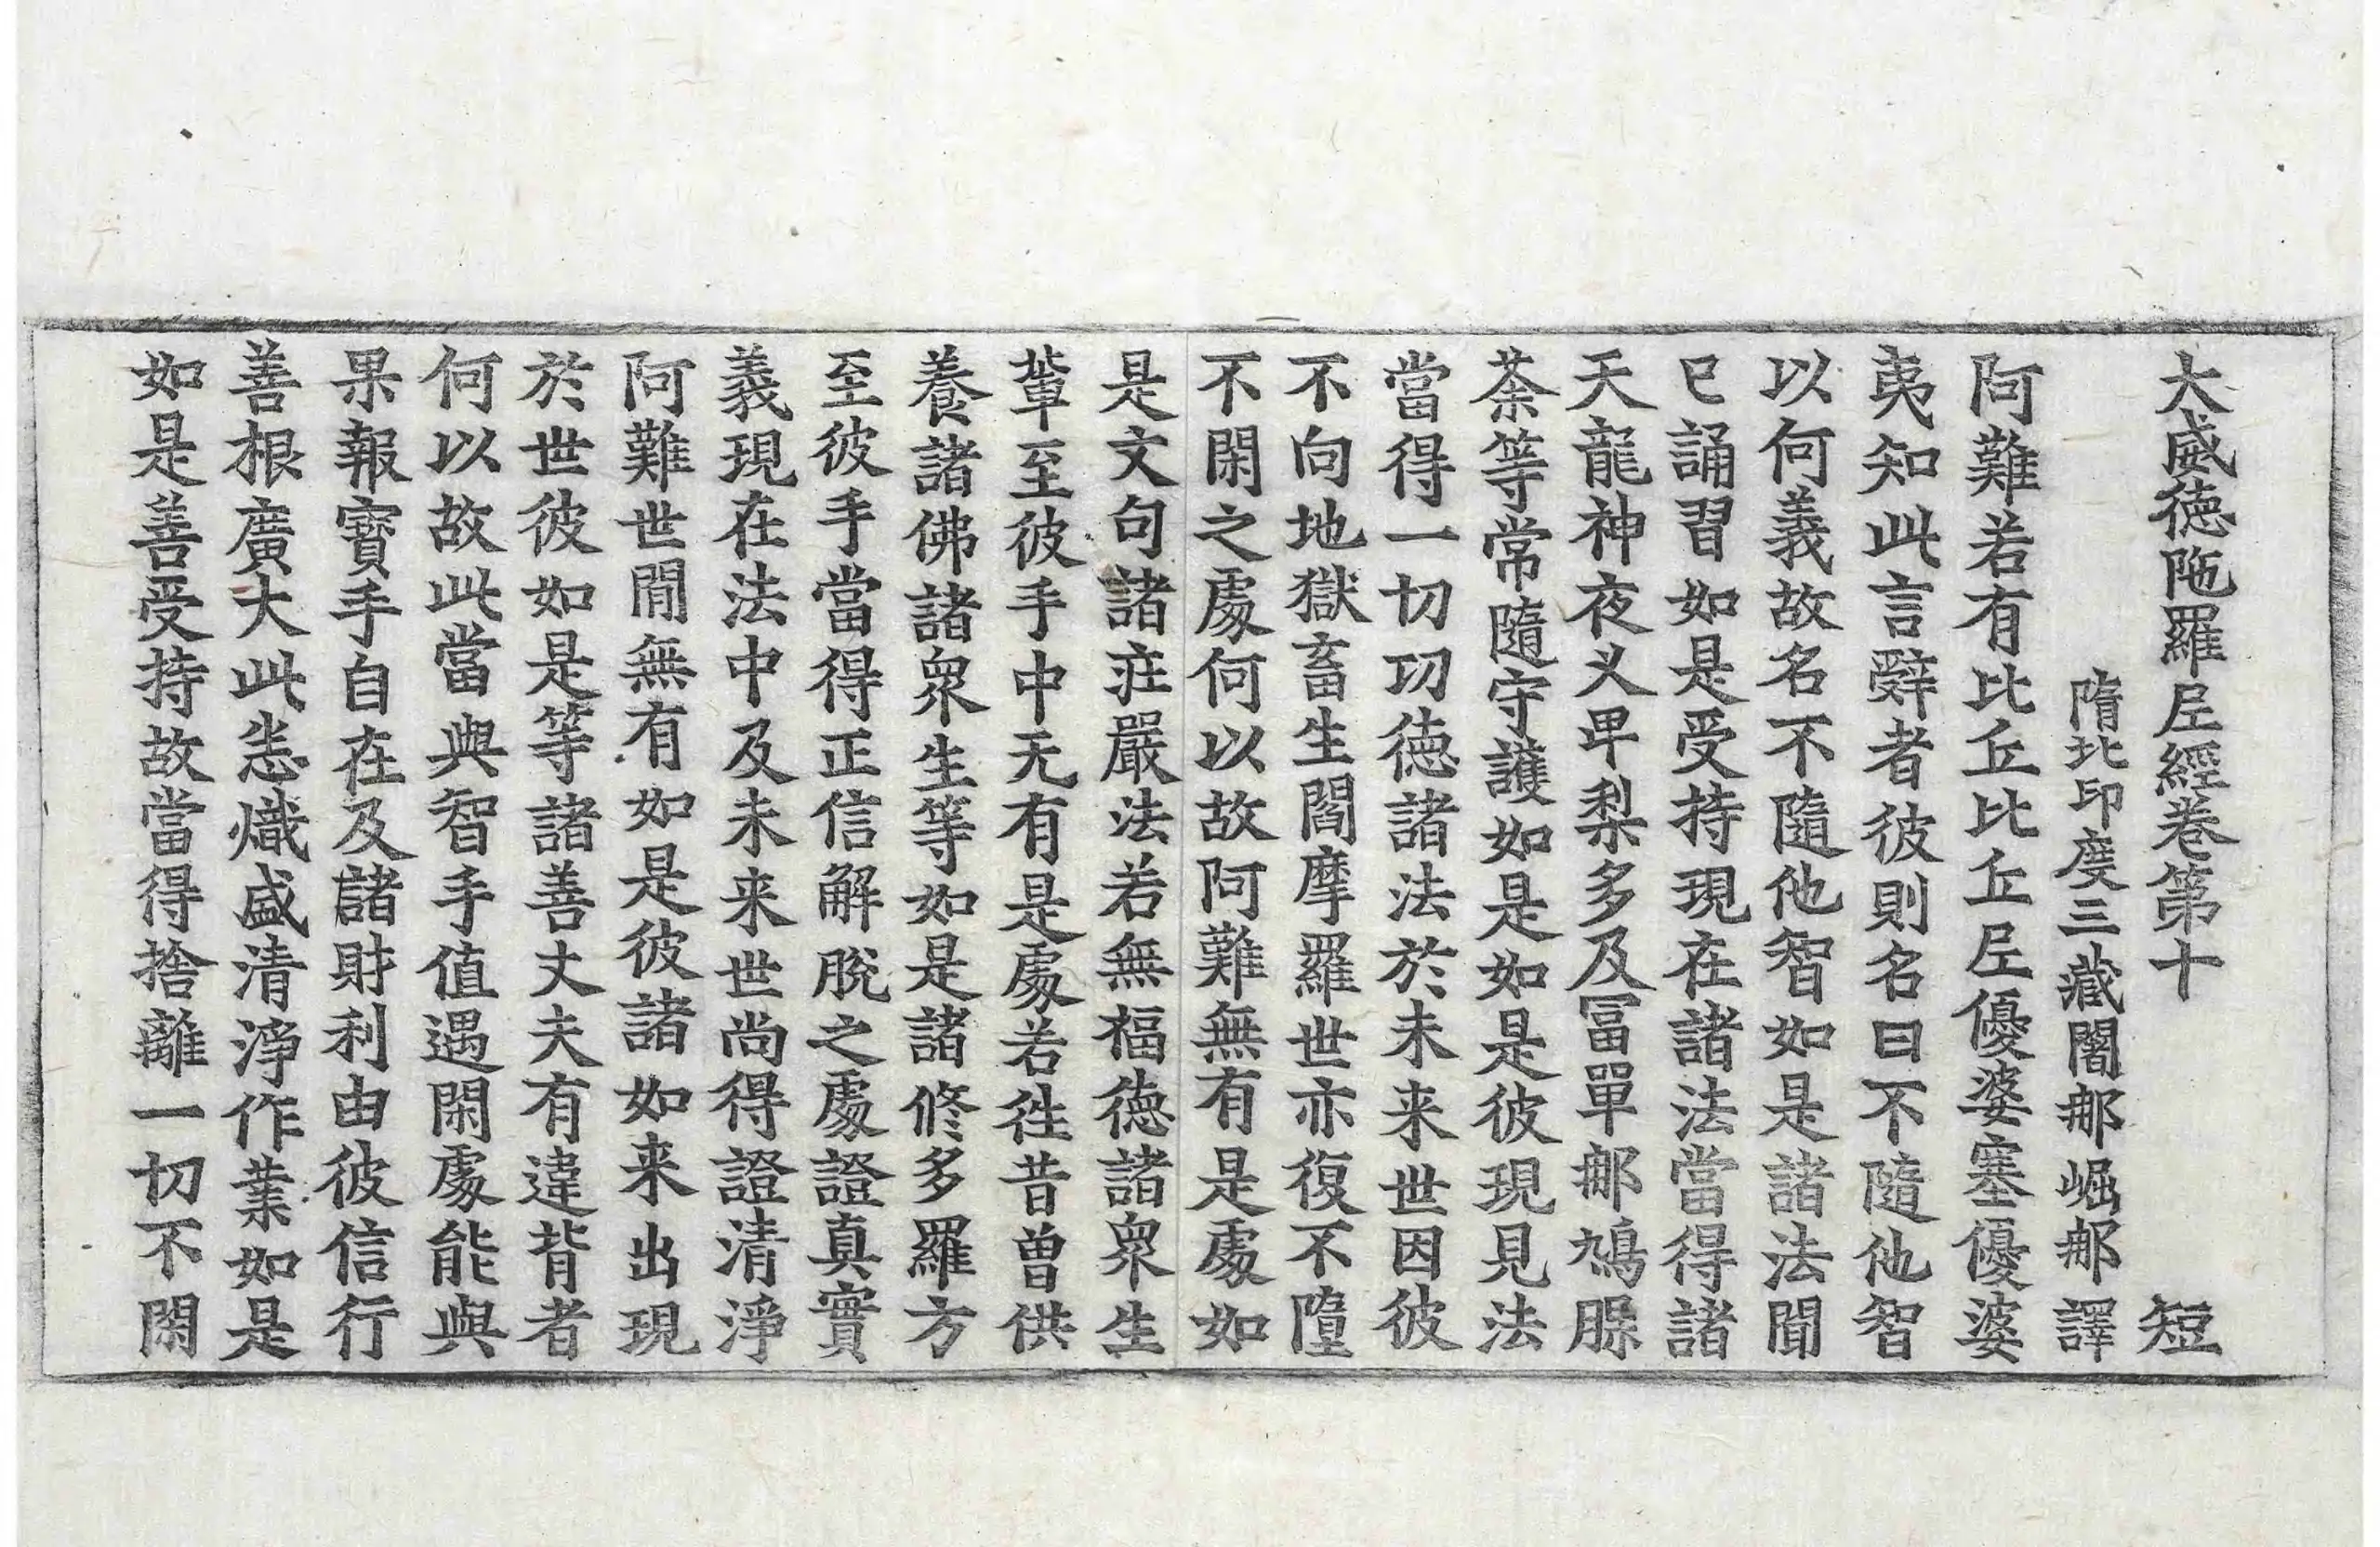 大威徳陁羅𡰱經卷第十 短
隋北印度三藏闍郍崛郍譯
阿難若有比丘比丘𡰱優婆塞優婆
夷知此言辭者彼則名曰不隨他智
以何義故名不隨他智如是諸法聞
已誦習如是受持現在諸法當得諸
天龍神夜叉畢梨多及冨單郍鳩脲
荼等常隨守護如是如是彼現見法
當得一切切德諸法於未来世因彼
不向地獄畜生閻摩羅世亦復不墮
不閑之處何以故阿難無有是處如
是文句諸庄嚴法若無福徳諸衆生
軰至彼手中无有是處若徃昔曾供
養諸佛諸衆生等如是諸修多羅方
至彼手當得正信解脫之處證真實
義現在法中及未来世尚得證清淨
阿難世閒無有如是彼諸如来出現
於世彼如是等諸善丈夫有違背者
何以故此當與智手值遇閑處能與
果報寶手自在及諸財利由彼信行
善根廣大此恙熾盛清淨作業如是
如是善受持故當得捨離一切不閑